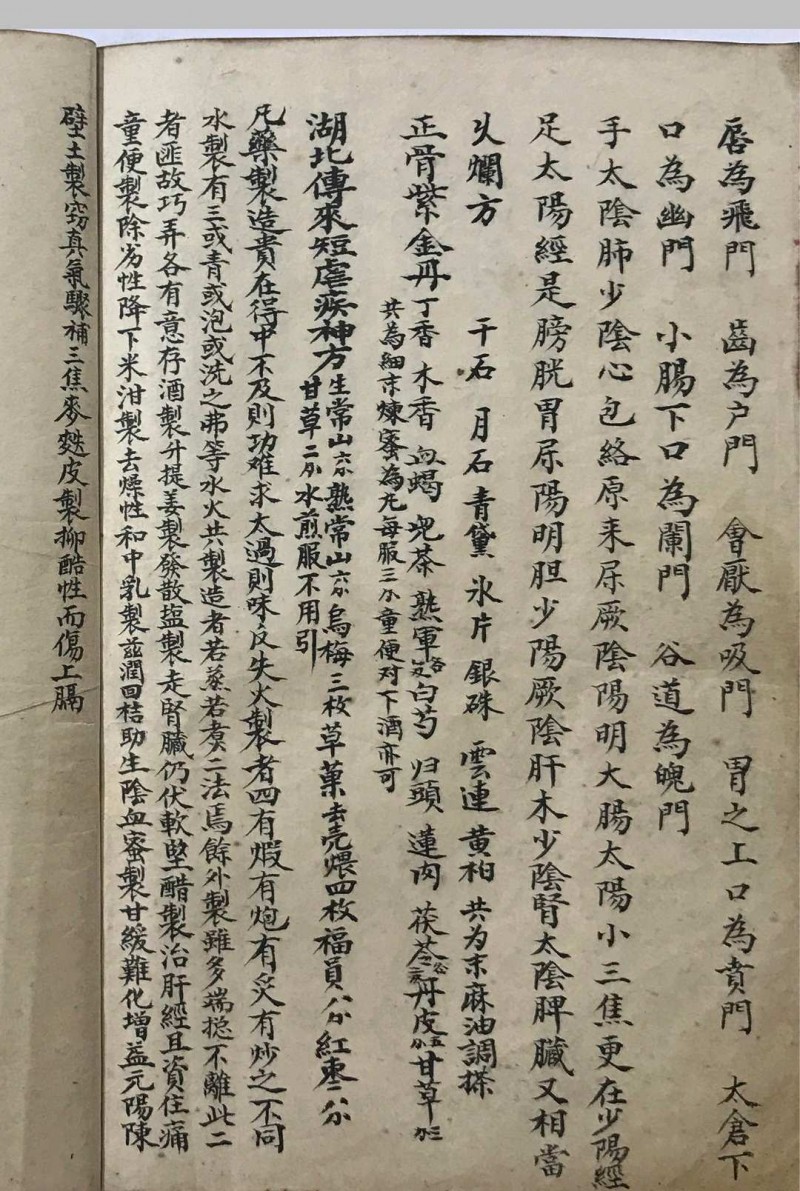 唇為飛門　齒為户門　會厭為吸門　胃之上口為賁門　太倉下
口為幽門　小腸下口為闌門　谷道為魄門
手太陰肺少陰心包絡原来屈厥陰陽明大腸太陽小三焦更在少陽經
足太陽經是膀胱胃屈陽明胆少陽厥陰肝木少陰腎太陰脾臟又相當
乆爛方　干石　月石　青黛　氷片　銀硃　雲連　黄柏　共为末麻油調搽
正骨紫金丹　丁香　木香　血蝎　兒茶　熟軍　白芍　归頭　蓮肉　茯苓　丹皮　甘草
共為細末煉蜜為丸每服三分童便对下酒亦可
湖北傳來短虐疾神方　生常山六分熟常山六分烏梅三枚草菓去壳煨四枚福員八分紅枣二分
甘草二分水煎服不用引
凡藥製造貴在得中不及則功难求太過則味反失火製者四有煆有炮有炙有炒之不同
水製有三或青或泡或洗之弗等水火共製造者若蒸若煑二法焉餘外製雖多端捴不離此二
者匪故巧弄各有意存酒製升提姜製發散盐製走腎臟仍伏軟堅醋製治肝經且資住痛
童便製除劣性降下米泔製去燥性和中乳製茲潤回桔助生陰血蜜製甘緩難化增益元陽陳
壁土製窃真氣驟補三焦麥麩皮製抑酷性而傷上膈